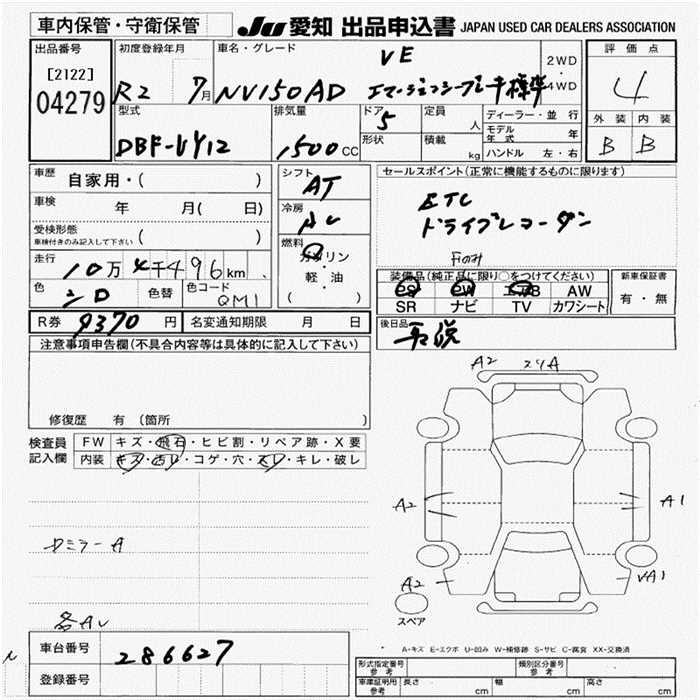 車内保管・守衛保管
JU 愛知 出品申込書 JAPAN USED CAR DEALERS ASSOCIATION
出品番号
[2122]
04279
初度登録年月
R2 7月
車名・グレード
VE
NV150AD エマージェンシーブレーキ標準
2WD
4WD
評価点
4
外装 内装
B B
型式
DBF-VY12
排気量
1500CC
ドア
5
形状
定員
人
積載
kg
ディーラー・並行
モデル年式 年
ハンドル 左・右
車歴
自家用・( )
車検
年 月( 日)
受検形態
車検付きのみ記入して下さい ( )
走行
10万4千496km
色
シロ
色替
色コード
QM1
R券 9370円
名変通知期限 月 日
シフト
AT
冷房
AC
燃料
ガソリン
・
軽・油
( )
セールスポイント(正常に機能するものに限ります)
ETC
ドライブレコーダー
Fのみ
装備品(純正品に限り○をつけてください)
PS PW エアB AW
SR ナビ TV カワシート
新車保証書
有・無
後日品
注意事項申告欄(不具合内容等は具体的に記入して下さい)
修復歴 有(箇所
検査員記入欄
FW キズ・飛石・ヒビ割・リペア跡・X要
内装 キズ・汚れ・コゲ・穴・スレ・キレ・破レ
A2 スリA
A2
A1
A2
VA1
スペア
ロミラーA
各AU
車台番号
286627
登録番号
A-キズ E-エクボ U-凹み W-補修跡 S-サビ C-腐食 XX-交換済
形式指定番号 参考
類別区分番号 参考
車庫証明用 参考
長さ cm
幅 cm
高さ cm